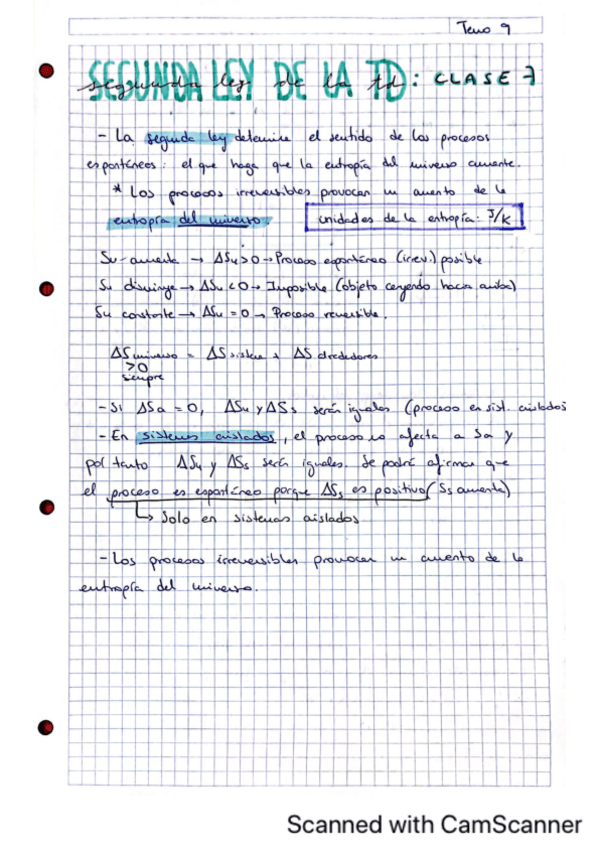 Tema 9
SEGUNDA LEY DE LA TD: CLASE 7
- La segunda ley determina el sentido de los procesos
espontáneos: el que haga que la entropía del universo aumente.
* Los procesos irreversibles provocan un aumento de la
entropía del universo.
unidades de la entropía: J/K
Su aumenta → ΔSu > 0 → Proceso espontáneo (irrev.) posible
Su disminuye → ΔSu < 0 → Imposible (objeto cayendo hacia arriba)
Su constante → ΔSu = 0 → Proceso reversible.
ΔS universo = ΔS sistema + ΔS alrededores
>0
siempre
- Si ΔSa = 0, ΔSu y ΔSs serán iguales (proceso en sist. aislados
- En sistemas aislados, el proceso no afecta a Sa y
por tanto ΔSu y ΔSs serán iguales. Se podrá afirmar que
el proceso es espontáneo porque ΔSs es positivo (Ss aumenta)
↳ Solo en sistemas aislados
- Los procesos irreversibles provocan un aumento de la
entropía del universo.
Scanned with CamScanner